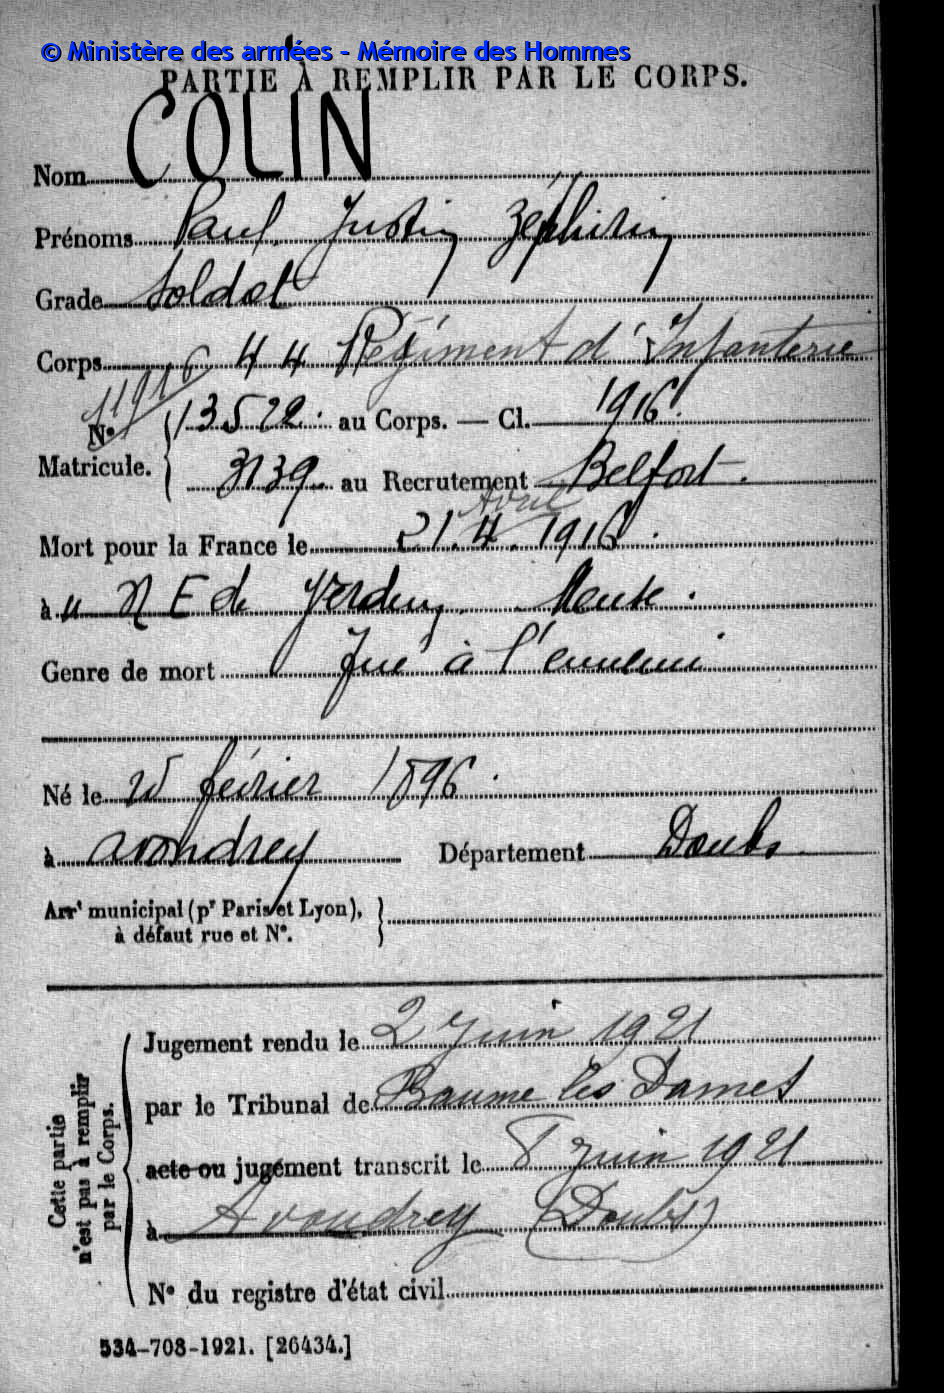 © Ministère des armées - Mémoire des Hommes
PARTIE À REMPLIR PAR LE CORPS.
Nom COLIN
Prénoms Paul Justin Zéphirin
Grade Soldat
Corps 44 Régiment d'Infanterie
11916
N° 13522. au Corps. — Cl. 1916.
Matricule. 3139. au Recrutement Belfort.
Avril
Mort pour la France le 21.4.1916.
à N E de Verdun. Meuse.
Genre de mort Tué à l'ennemi
Né le février 1896.
à avondrey Département Doubs.
Arrt municipal (pr Paris et Lyon),
à défaut rue et N°.
Cette partie
n'est pas à remplir
par le Corps.
Jugement rendu le 2 Juin 1921
par le Tribunal de Baume les Dames
acte ou jugement transcrit le 8 juin 1921
à Avoudrey (Doubs)
N° du registre d'état civil
534-708-1921. [26434.]